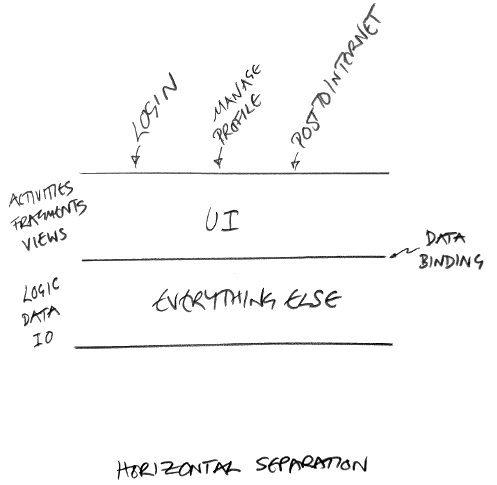 LOGIN
MANAGE
PROFILE
POST TO INTERNET
ACTIVITIES
FRAGMENTS
VIEWS
UI
DATA
BINDING
LOGIC
DATA
IO
EVERYTHING ELSE
HORIZONTAL SEPARATION